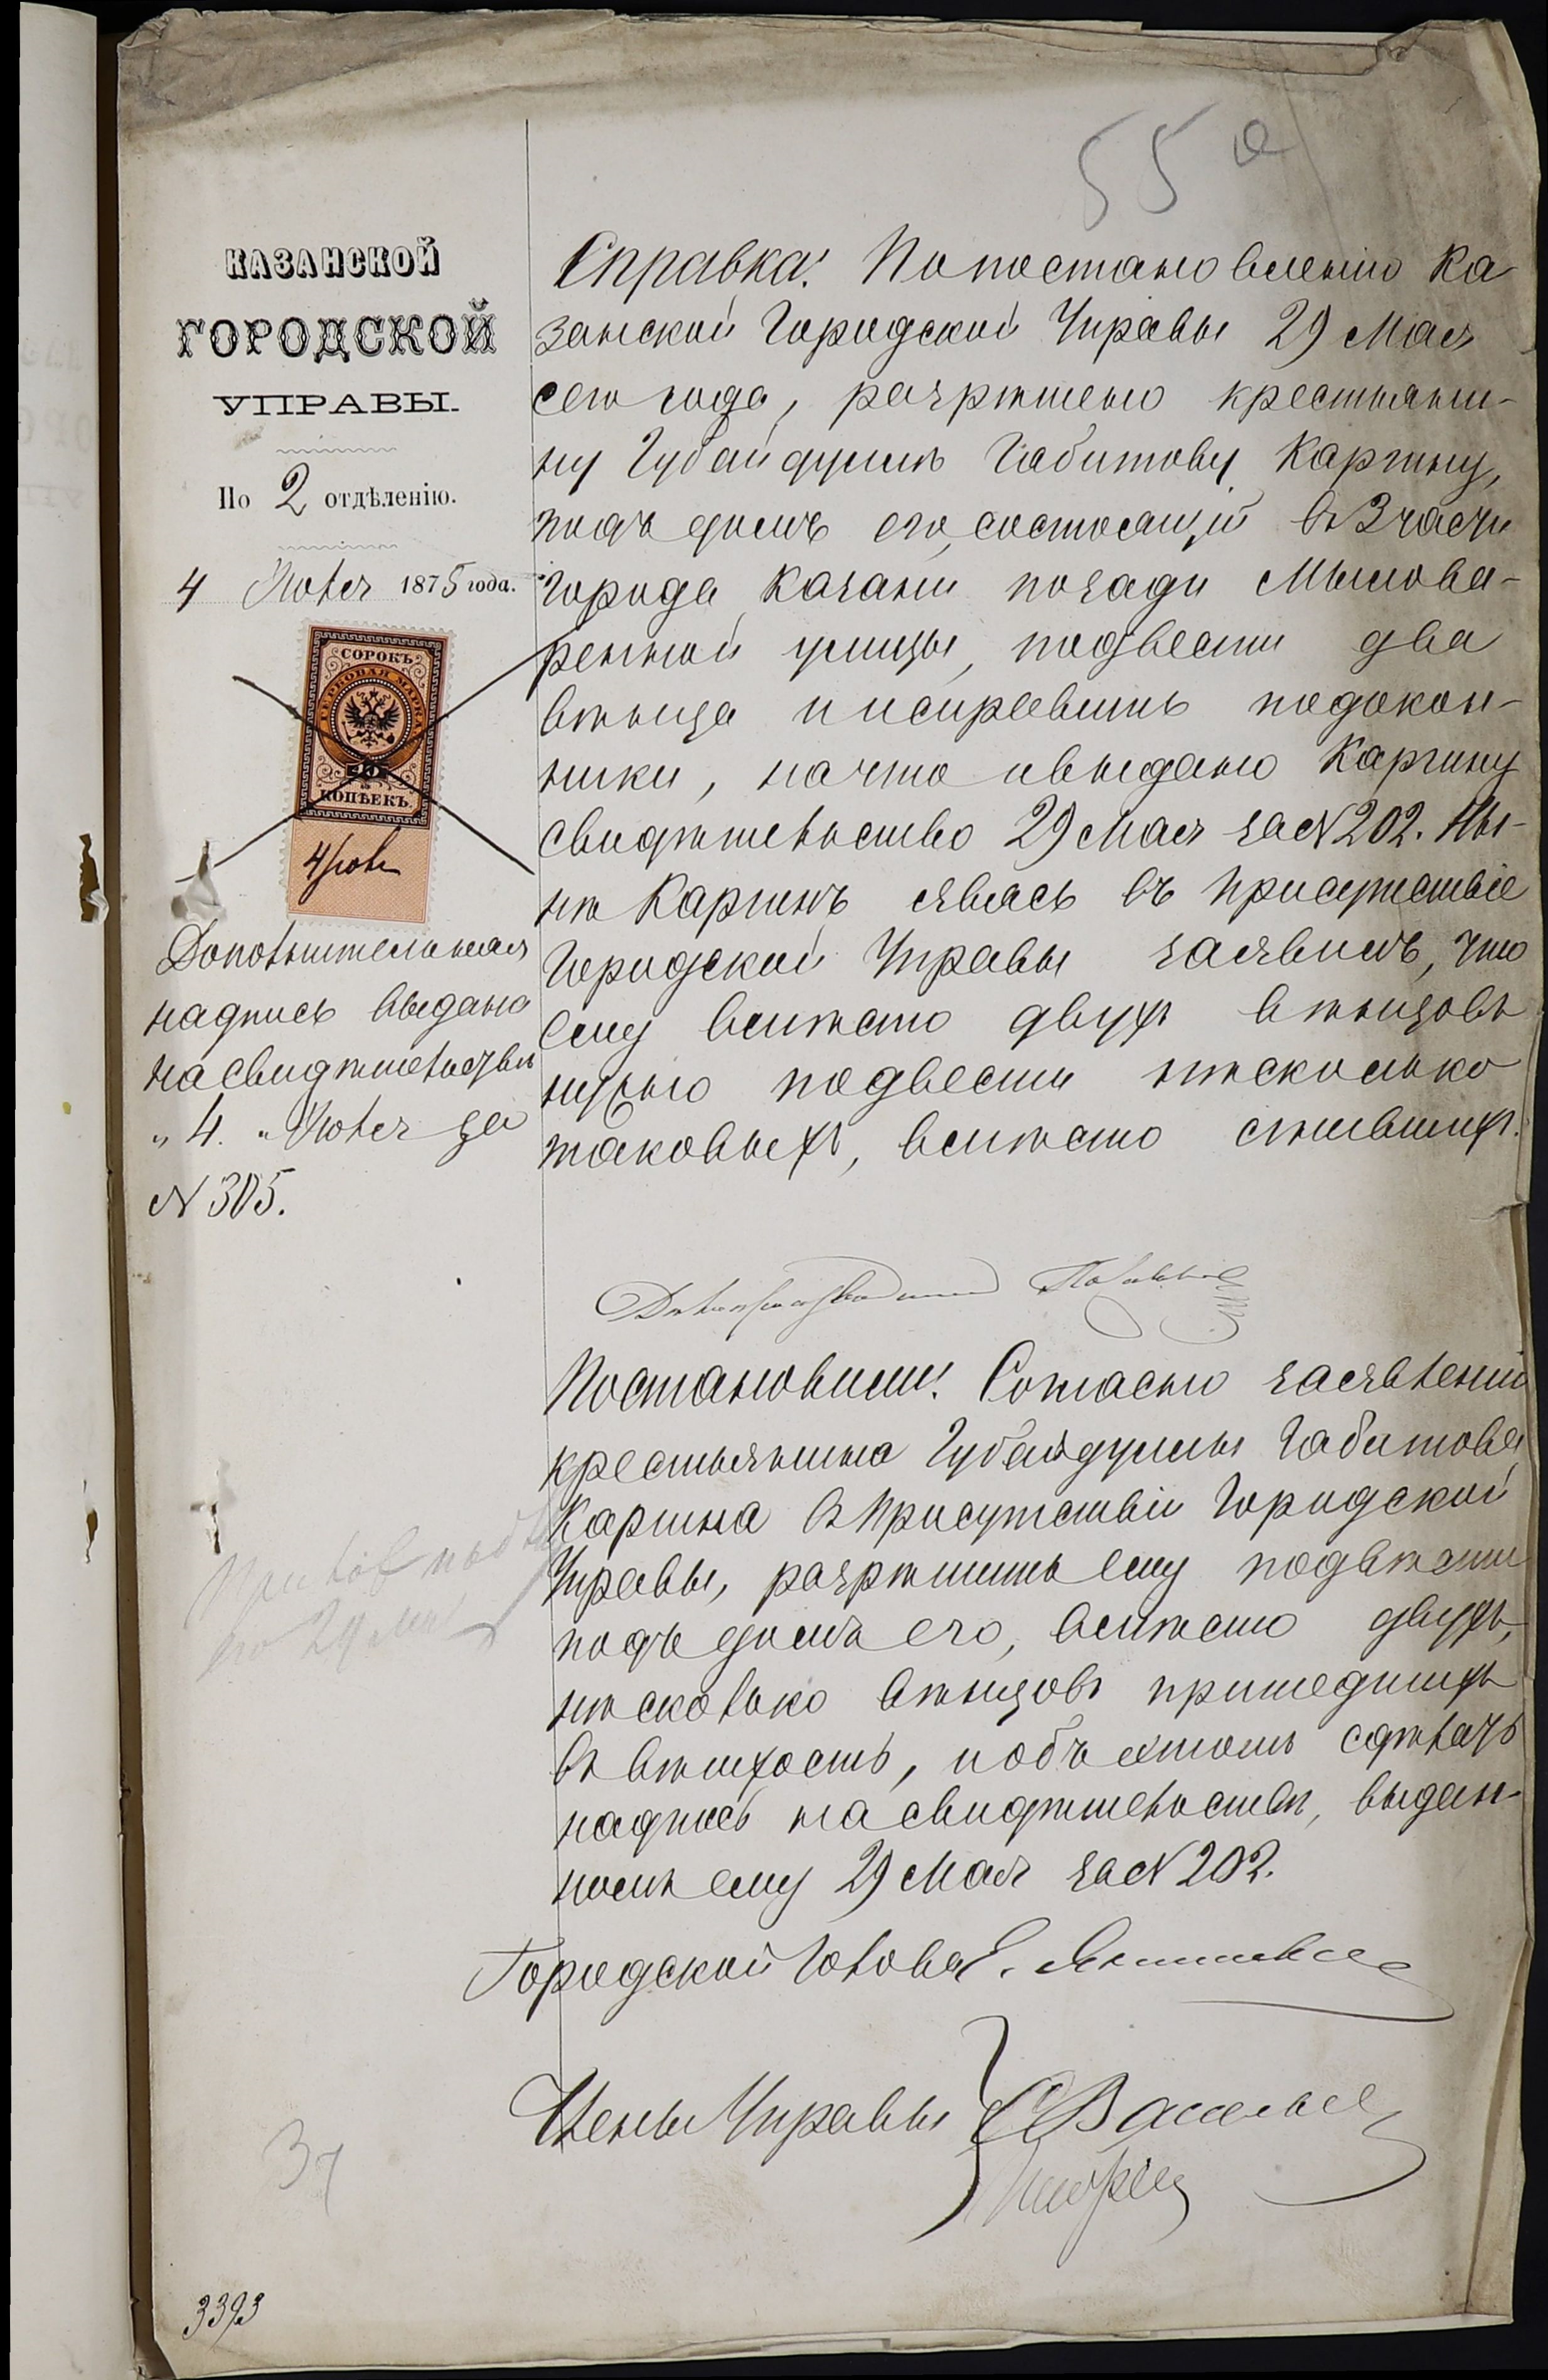 55
КАЗАНСКОЙ
ГОРОДСКОЙ
УПРАВЫ.
По 2 отдѣленію.
4 Іюля 1875 года.
СОРОКЪ
ГЕРБОВАЯ МАРКА
КОПѢЕКЪ.
4 Іюля
Дополнительная
надпись выдана
на свидѣтельствѣ
„4.„ Іюля за
N 305.
Справка: По постановленію Ка-
занской Городской Управы 29 Мая
сего года, разрѣшено крестьяни-
ну Губайдуллѣ Габитову Каргину,
подъ домъ его, состоящій въ 3 части
города Казани позади Мылова-
ренной улицы, подвести два
вѣнца и исправить подокон-
ники, на что и выдано Каргину
свидѣтельство 29 Мая за N 202. Ны-
нѣ Каргинъ явясь въ присутствіе
Городской Управы заявилъ, что
ему вмѣсто двухъ вѣнцовъ
нужно подвести нѣсколько
таковыхъ, вмѣсто сгнившихъ.
Постановили: Согласно заявленію
крестьянина Губайдуллы Габитова
Каргина въ присутствіи Городской
Управы, разрѣшить ему подвѣсти
подъ домъ его, вмѣсто двухъ,
нѣсколько вѣнцовъ пришедшихъ
въ вѣтхость, и объ этомъ сдѣлать
надпись на свидѣтельствѣ, выдан-
номъ ему 29 Мая за N 202.
Городской Голова Е. Янишевскій
Члены Управы
3393